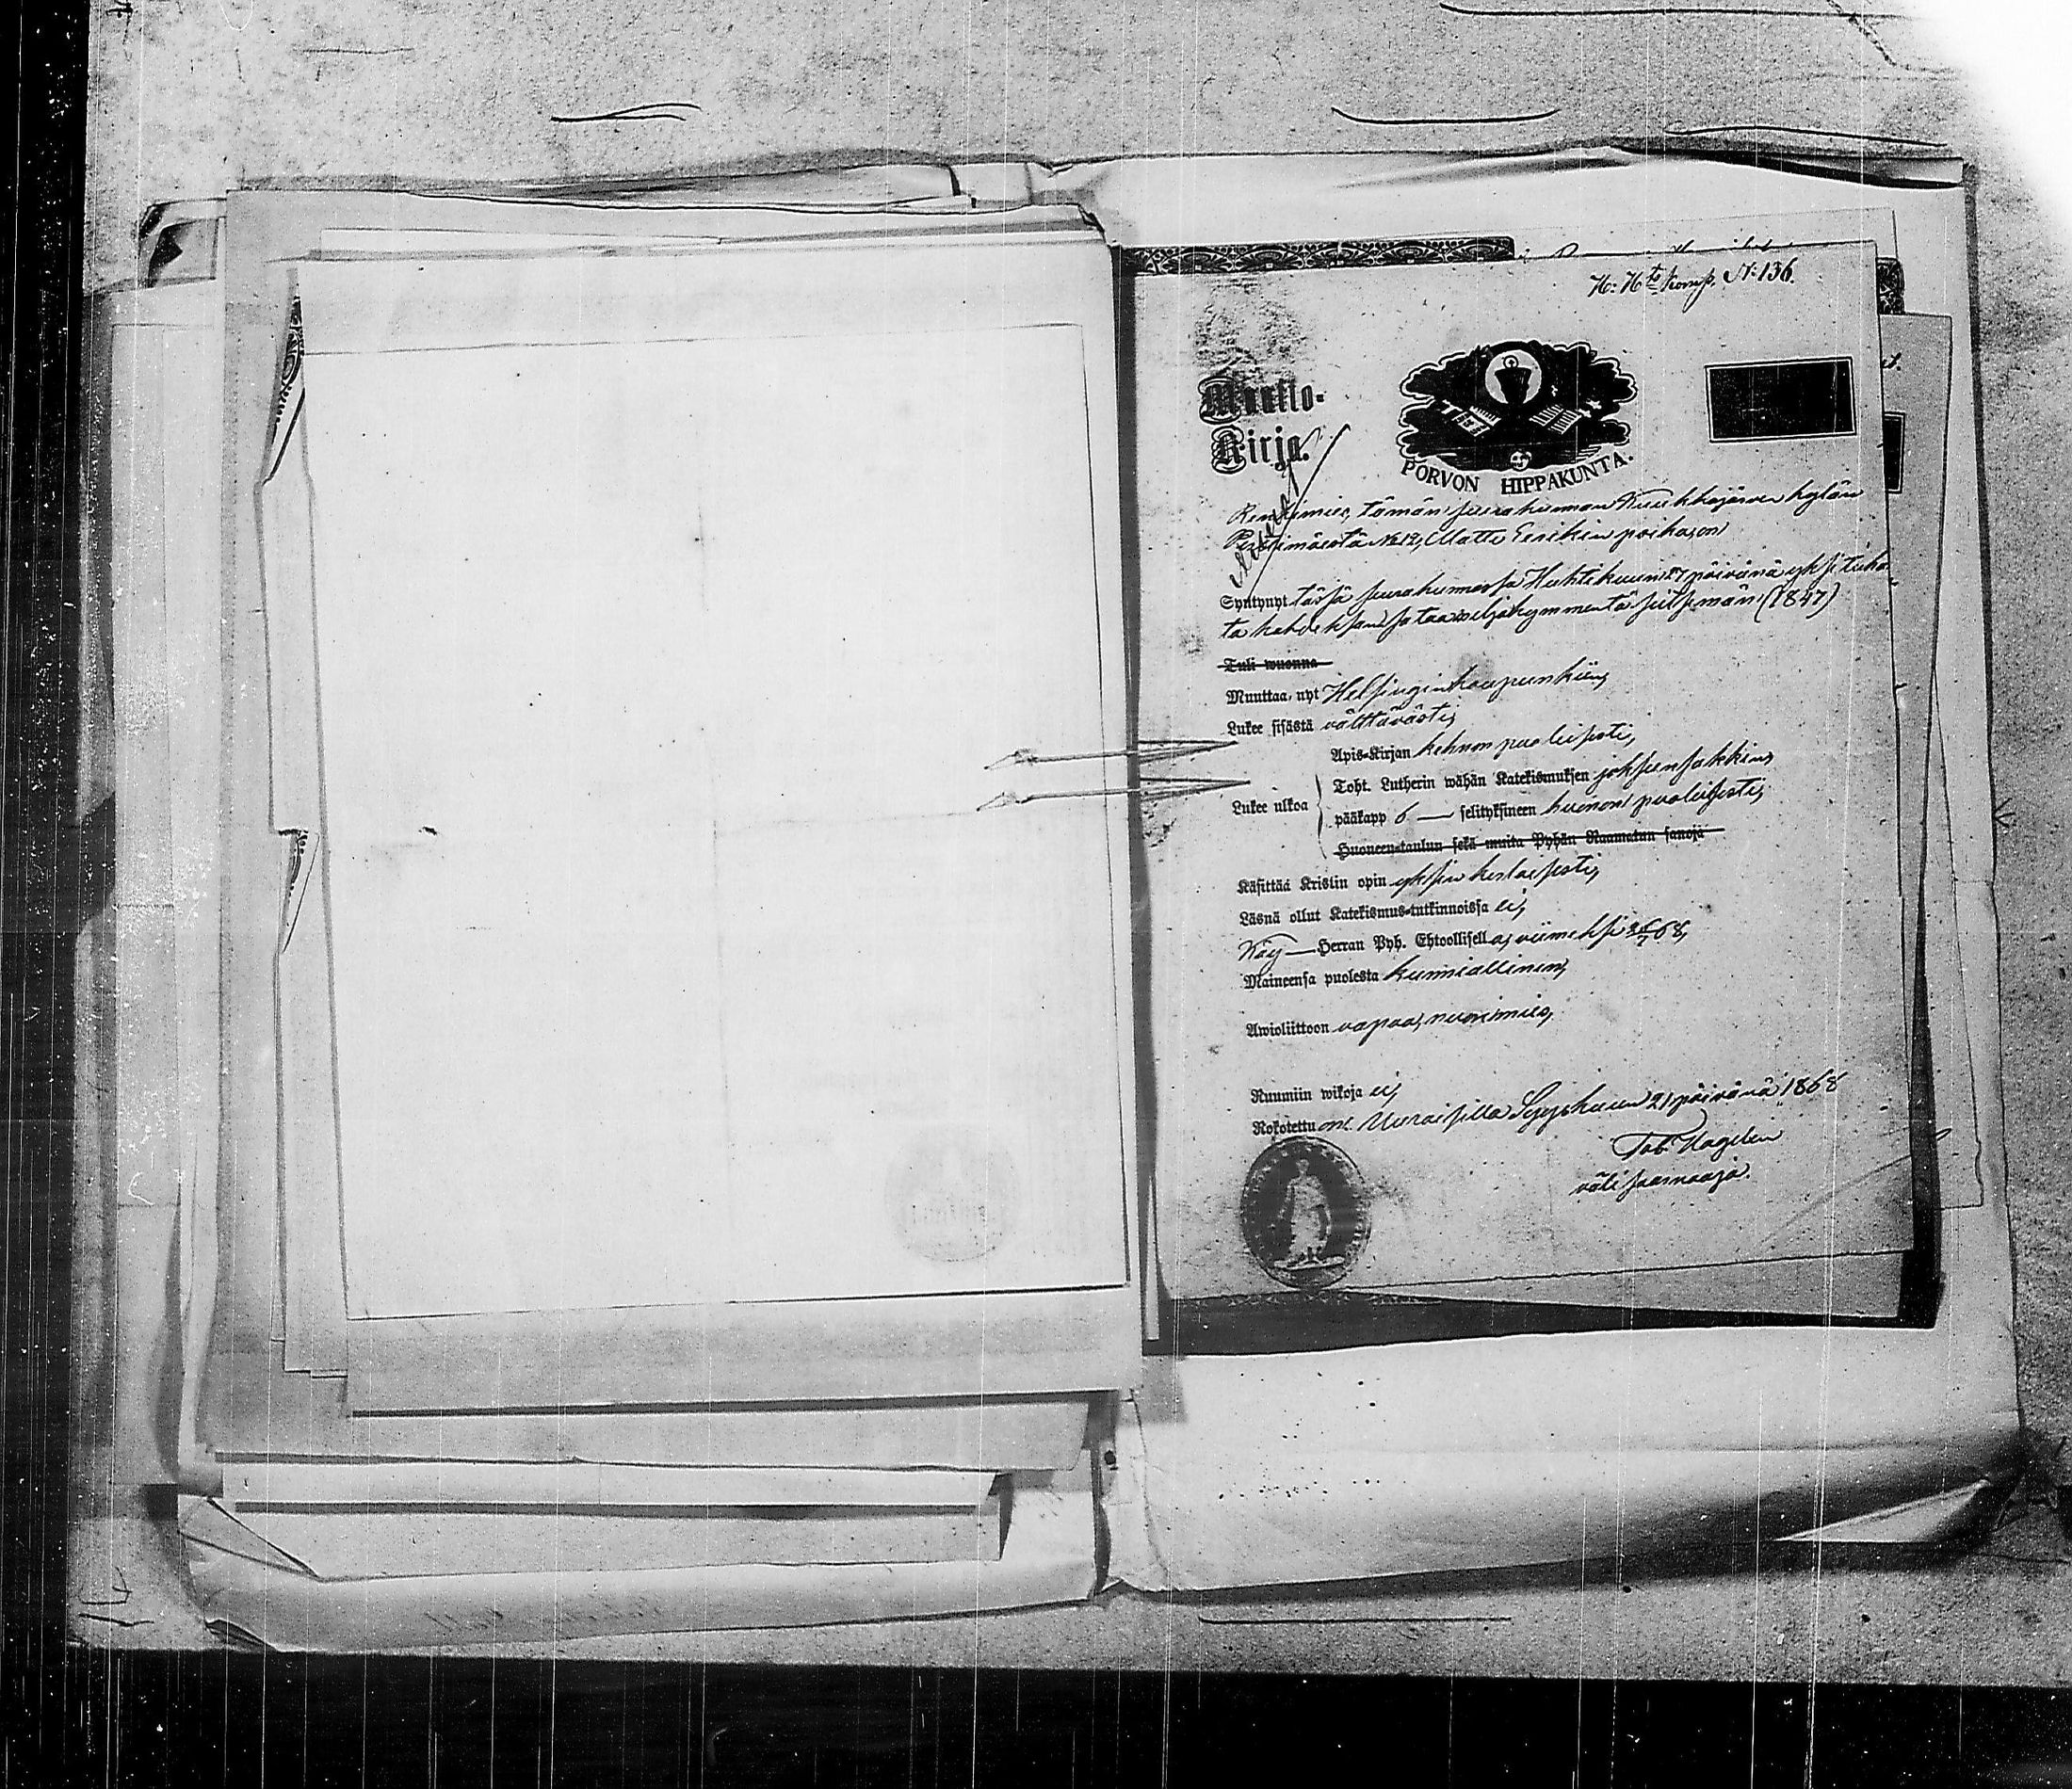 H: Hts komp. N: 136.
Muutto-
Kirja.
PORVON HIPPAKUNTA.
Renkimies, tämän seurakunnan Kuukkajärven kylän
N:12, Matti Eerikin poika, on
Syntynyt tässä seurakunnassa Huhtikuun 27 päivänä yksi tuha
ta kahdeksan sataa neljäkymmentä seitsemän (1847)
Tuli wuonna
Muuttaa, nyt Helsingin kaupunkiin,
Lukee sisästä välttävästi,
Apis-Kirjan kehnon puoleisesti,
Toht. Lutherin wähän Katekismuksen joksensakkin,
Lukee ulkoa
pääkapp 6 — selityksineen huonon puoleisesti,
Huoneen-taulun sekä muita Pyhän Raamatun sanoja
Käsittää Kristin opin yksinkertaisesti,
Läsnä ollut Katekismus-tutkinnoissa ei,
Käy — Herran Pyh. Ehtoollisella, viimeksi 68,
Maineensa puolesta kunniallinen,
Awioliittoon vapaa, nuorimies,
Ruumiin wikoja ei,
Rokotettu on. Uuraisilla Syyskuun 21 päivänä 1868
väli saarnaaja.